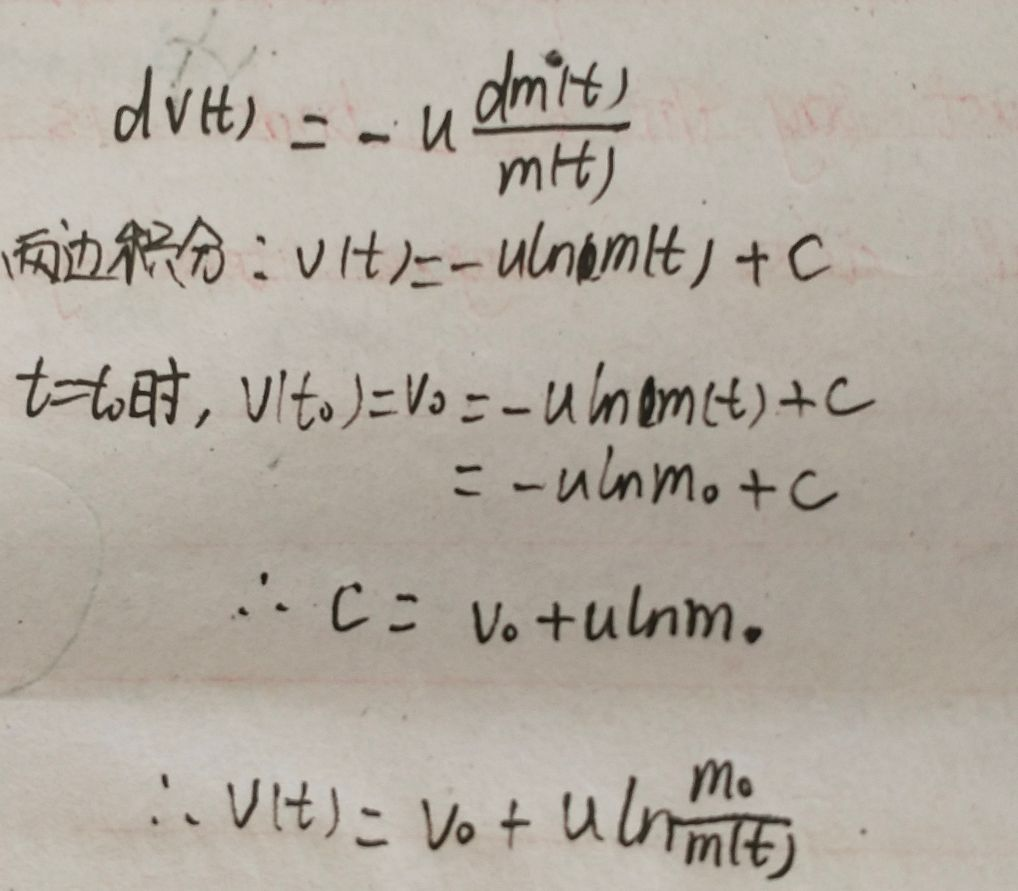 dv(t) = - u dm(t)/m(t)
两边积分: v(t) = - u ln m(t) + C
t=t₀时, v(t₀) = v₀ = - u ln m(t) + C
= - u ln m₀ + C
∴ C = v₀ + u ln m₀
∴ v(t) = v₀ + u ln m₀/m(t)